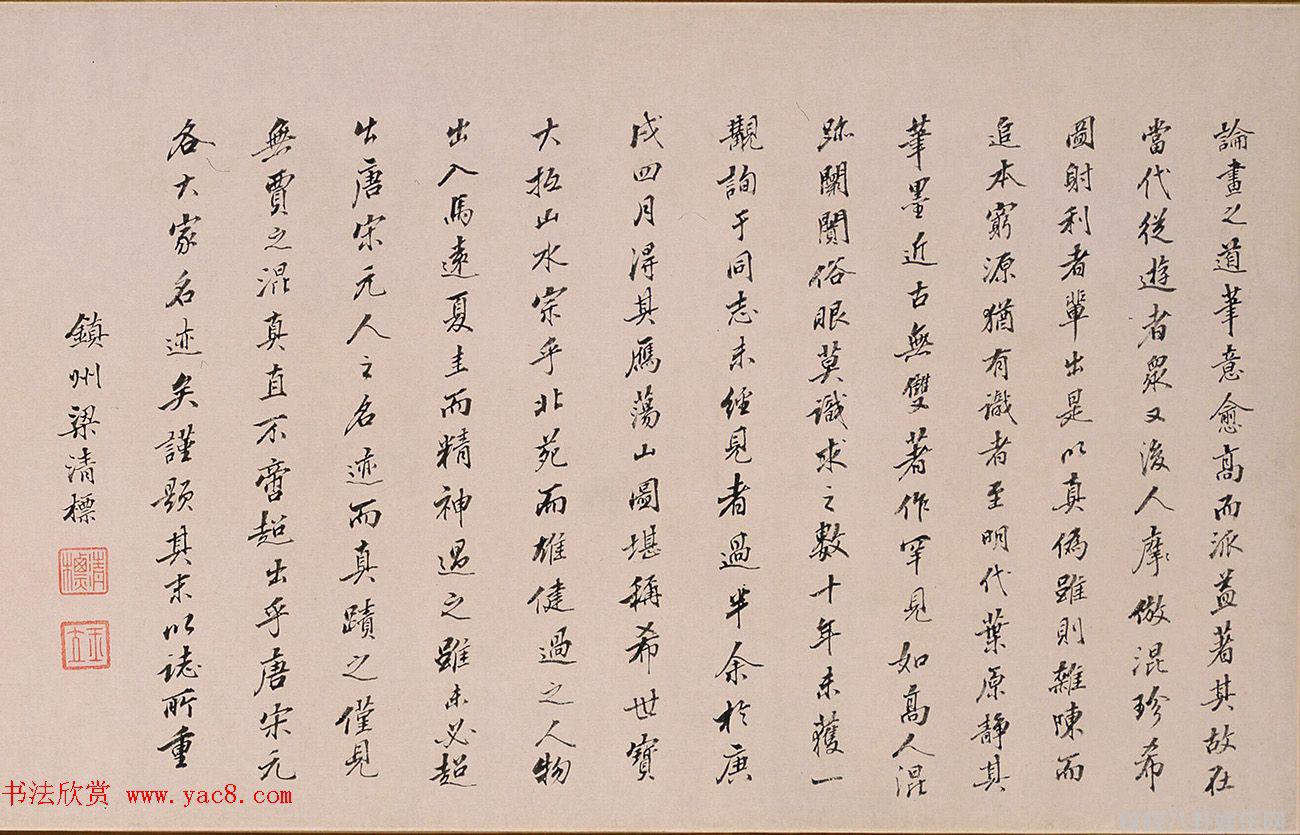 論畫之道筆意愈高而派益著其故在
當代從遊者眾又後人摩倣混珍希
圖射利者輩出是以真偽雖則雜陳而
追本窮源猶有識者至明代葉原靜其
筆墨近古無雙著作罕見如高人混
跡闤闠俗眼莫識求之數十年未獲一
觀詢于同志未經見者過半余於庚
戌四月得其鴈蕩山圖堪稱希世寶
大抵山水宗乎北苑而雄健過之人物
出入馬遠夏圭而精神過之雖未必超
出唐宋元人之名迹而真蹟之僅見
無贾之混真直不啻超出乎唐宋元
各大家名迹矣謹題其末以誌所重
鎮州梁清標
清標
玉立
书法欣赏 www.yac8.com